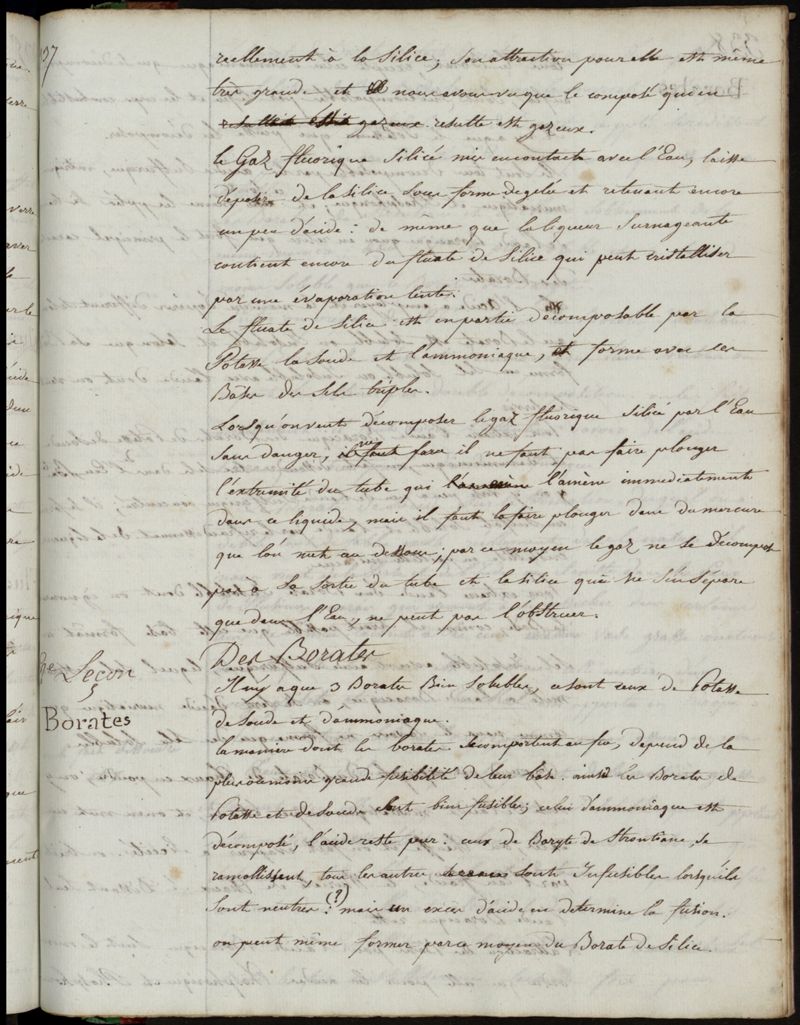 37
reellement à la Silice; son attraction pour elle est même
tres grande et nous avons vu que le composé qui en
resulte est gazeux.
le Gaz fluorique Silicé mis en contacte avec l'Eau, laisse
déposer de la silice sous forme de gelée et retenant encore
un peu d'acide: de même que la liqueur Surnageante
contient encore du fluate de Silice qui peut cristalliser
par une évaporation lente.
Le fluate de Silice est en partie décomposable par la
Potasse la soude et l'ammoniaque, et forme avec ces
Bases des sels triples.
Lorsqu'on veut décomposer le gaz fluorique Silicé par l'Eau
sans danger, il ne faut pas faire plonger
l'extremité du tube qui l'amène immediatement
dans ce liquide, mais il faut la faire plonger dans du mercure
que l'on met au dessous; par ce moyen le gaz ne se décompose
pas à la sortie du tube et la silice qui ne s'en sépare
que dans l'Eau, ne peut pas l'obstruer.
Leçon
§
Borates
Des Borates
Il n'y a que 3 Borates Bien solubles, ce sont ceux de Potasse
de soude et d'ammoniaque.
la maniere dont les borates se comportent au feu, depend de la
plus ou moins grande fusibilité de leur base. ainsi les Borates de
Potasse et de soude sont bien fusibles; celui d'ammoniaque est
décomposé, l'acide reste pur. ceux de Baryte de Strontiane, se
ramollissent, tous les autres sont Infusibles lorsqu'ils
sont neutres (?) mais un exces d'acide en determine la fusion.
on peut même former par ce moyen du Borate de Silice.